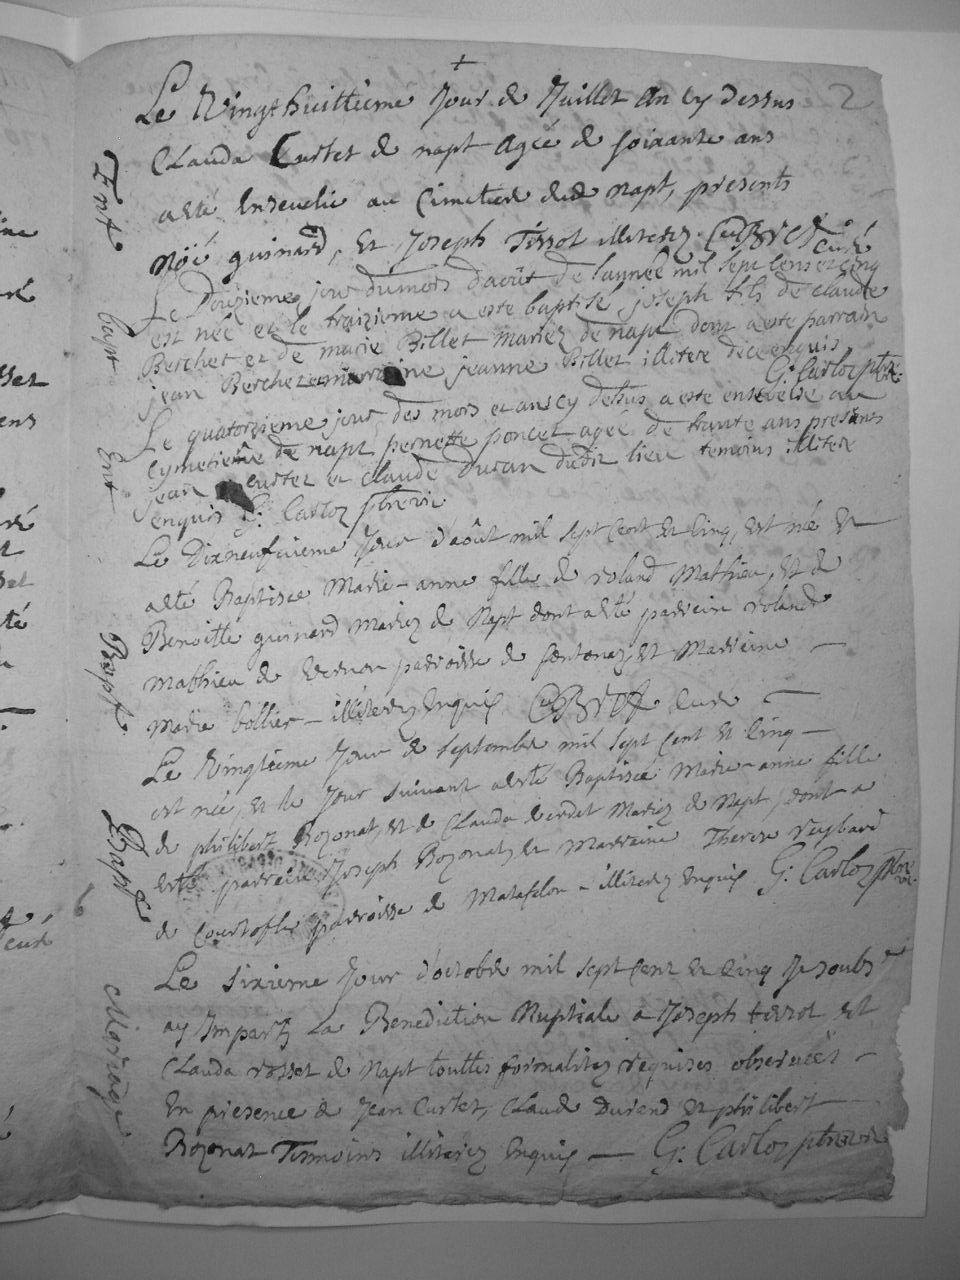 2
Le Vingthuittieme Jour de Juillet An cy dessus
Clauda Curtet de napt Agée de soixante ans
a esté Enseuelie au Cimetiere dud napt, presents
Noé guinard, Et Joseph Tissot illiterez curé
Le Douzieme jour du mois daoüt de lannée mil sept cens et cinq
est née et le traizieme a esté baptisé joseph fils de claude
Berchet et de marie Billet mariez de napt dont a este parrain
jean Berchet et marraine jeanne Billet illitere dice enquis
G: Carloz ptre
Le quatorzieme jour des mois et an cy dessus a este enseuelie au
Cymetiere de napt pernette poncet agée de trante ans presents
jean curtet et claude duran dudit lieu temoins illitere
enquis G: Carloz ptre vic
Le Dixneufuieme Jour d'aôut mil sept Cent Et Cinq, est née Et
a esté Baptisee Marie-anne fille de roland Mathieu, Et de
Benoitte guinard Mariez de Napt dont a esté parrein roland
Mathieu de Vernon parroisse de fontenez, Et Marreine
Marie bollier - illiterez Enquis curé
Le Vingtieme Jour de septembre mil sept Cent Et Cinq
est née, Et le Jour suivant a esté Baptisee Marie-anne fille
de philibert Rozonat, et de Clauda Mariez de Napt, dont a
Esté parrein Joseph Rozonat, et Marreine Therese reybard
de Courtofle parroisse de Matafelon - illiterez Enquis G: Carloz ptre vic.
Le sixieme Jour d'octobre mil sept Cent Et Cinq Je soubsné
ay Imparty La Benediction Nuptiale a Joseph tissot Et
Clauda rosset de Napt touttes formalitez requises obseruées
En presence de Jean Curtet, Claude Durand Et philibert
Rozonat Temoins illiterez Enquis - G: Carloz ptre vic
Ent
bapt
Ent
Bapt
Bapt
Mariage